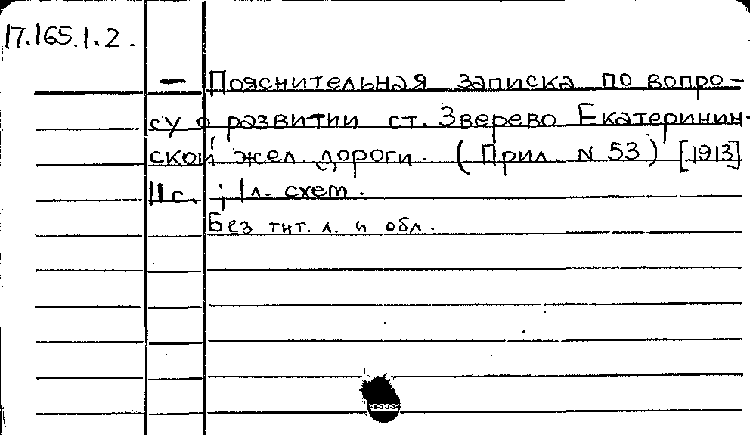 17.165.1.2.
— Пояснительная записка по вопро-
су о развитии ст. Зверево Екатеринин-
ской жел. дороги. (Прил. N 53) [1913]
11 с. ; 1 л. схем.
Без тит. л. и обл.